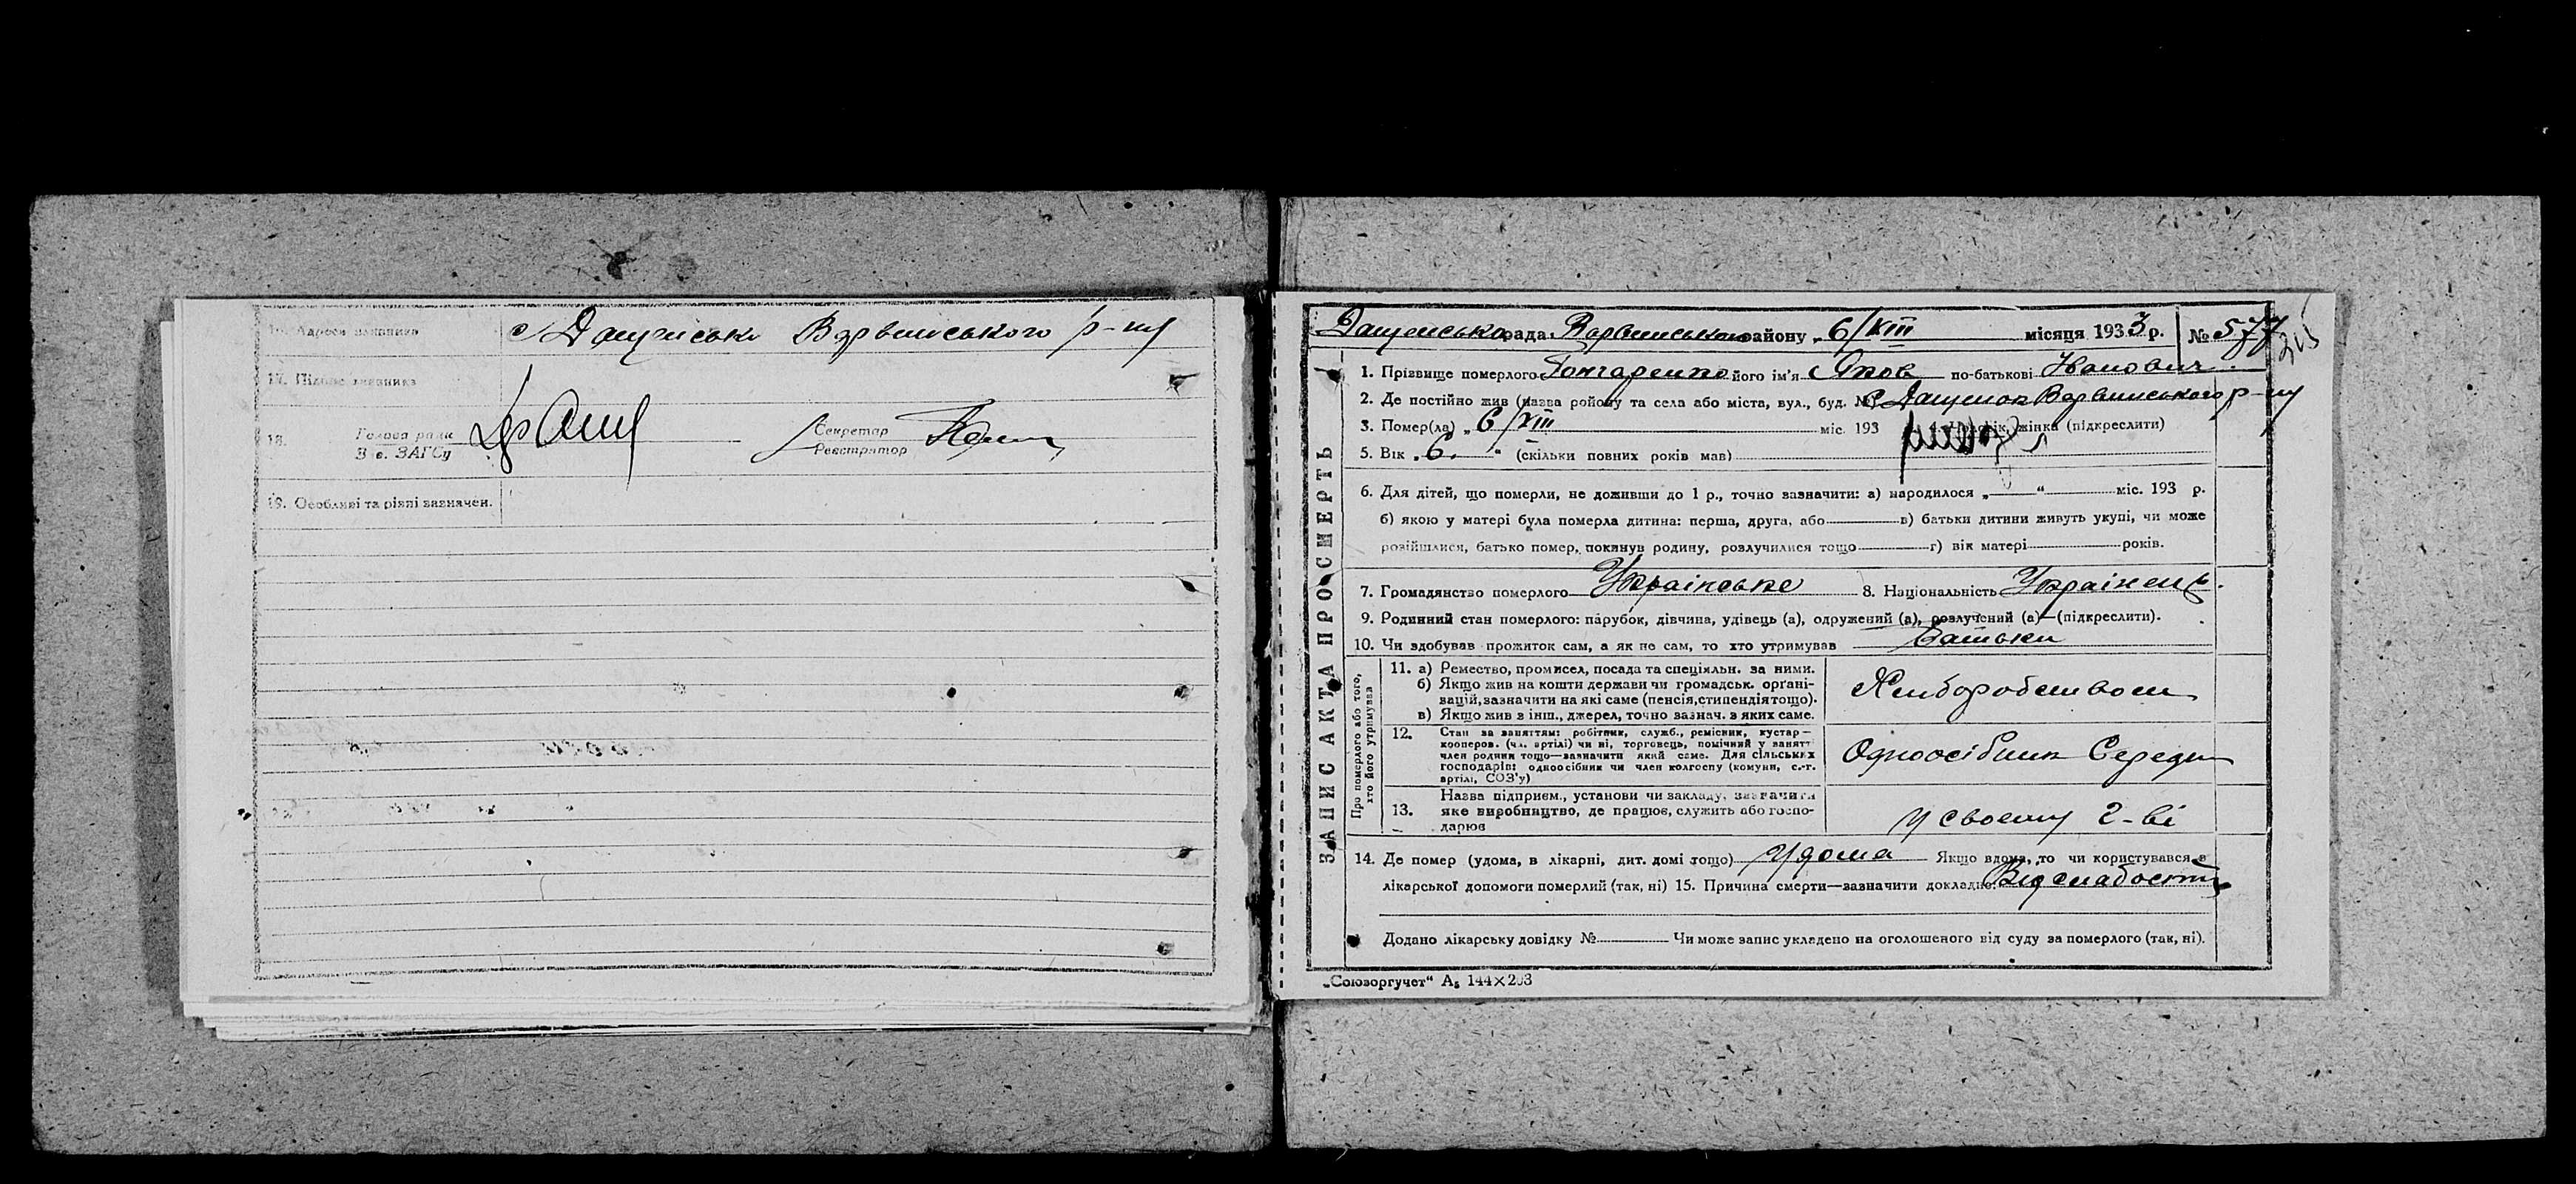 16. Адреса заявника с Дащенськи Варвинського р-ну
17. Підпис заявника
18. Голова ради Секретар
Зав. ЗАГСу Реєстратор
19. Особливі та різні зазначен.
Дащенська рада, Варвинського району „6/XIII місяця 1933 р. № 577
215
1. Прізвище померлого Гончаренко його ім'я Яков по-батькові Іванович
2. Де постійно жив (назва району та села або міста, вул., буд. №) с Дащенок Варвинського р-ну
3. Помер(ла) „6/XIII міс. 193 жінка (підкреслити)
5. Вік „6." (скільки повних років мав)
6. Для дітей, що померли, не доживши до 1 р., точно зазначити: а) народилося „ " міс. 193 р.
б) якою у матері була померла дитина: перша, друга, або в) батьки дитини живуть укупі, чи може
розійшлися, батько помер, покинув родину, розлучилися тощо г) вік матері років.
7. Громадянство померлого Українське 8. Національність Українець.
9. Родинний стан померлого: парубок, дівчина, удівець (а), одружений (а), розлучений (а)—(підкреслити).
10. Чи здобував прожиток сам, а як не сам, то хто утримував Батьки
ЗАПИС АКТА ПРО СМЕРТЬ
Про померлого або того, хто його утримував
11. а) Ремество, промисел, посада та спеціяльн. за ними.
б) Якщо жив на кошти держави чи громадськ. органі-
зацій, зазначити на які саме (пенсія, стипендія тощо).
в) Якщо жив з інш., джерел, точно зазнач. з яких саме.
Хліборобством
12. Стан за заняттям: робітник, служб., ремісник, кустар—
кооперов. (чл. артілі) чи ні, торговець, помічний у занятт
член родини тощо—зазначити який саме. Для сільських
господарів: одноосібник чи член колгоспу (комуни, с.-г.
артілі, СОЗ'у)
Одноосібник Середн
13. Назва підприєм., установи чи закладу, зазначити
яке виробництво, де працює, служить або госпо-
дарює
у своєму г-ві
14. Де помер (удома, в лікарні, дит. домі тощо) Удома Якщо вдома, то чи користувався з
лікарської допомоги померлий (так, ні) 15. Причина смерти—зазначити докладно: Від слабости
Додано лікарську довідку № Чи може запис укладено на оголошеного від суду за померлого (так, ні).
„Союзоргучет" А₅ 144×203